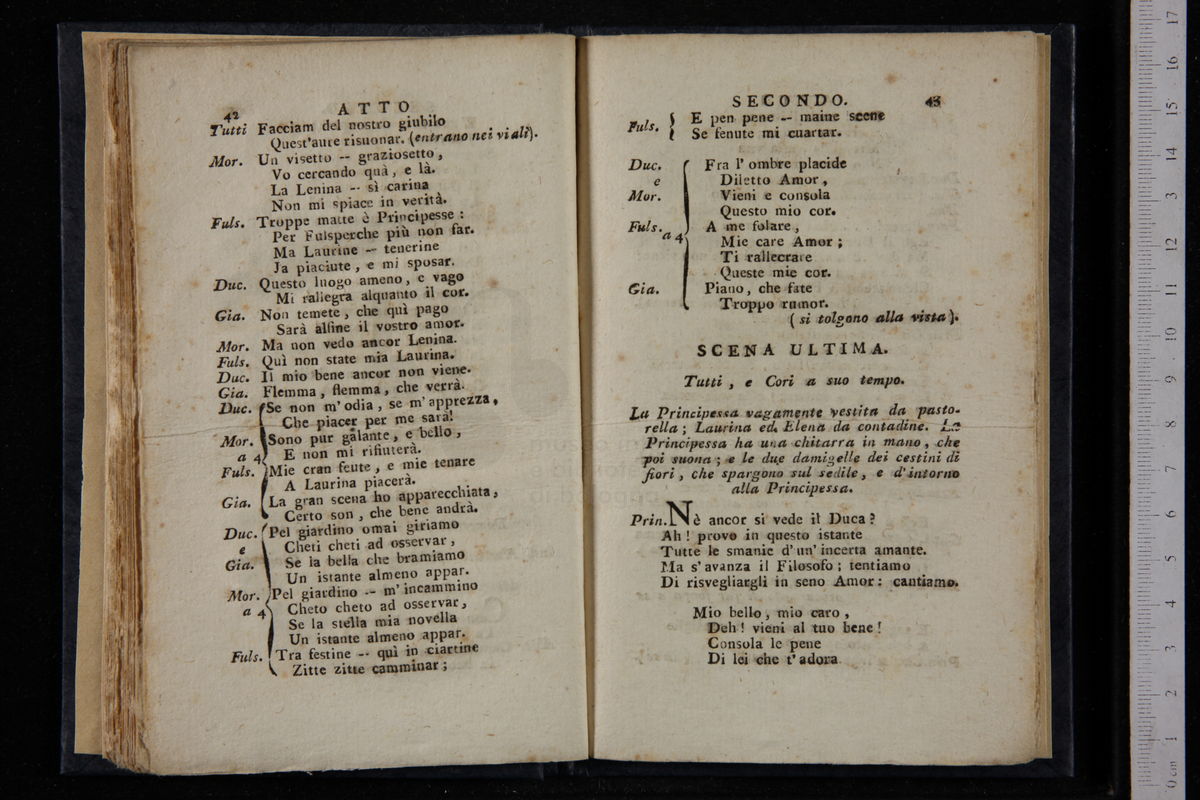 42
ATTO
Tutti Facciam del nostro giubilo
Quest'aure risuonar. (entrano nei viali).
Mor. Un visetto -- graziosetto,
Vo cercando quà, e là.
La Lenina -- sì carina
Non mi spiace in verità.
Fuls. Troppe matte è Principesse :
Per Fulsperche più non far.
Ma Laurine -- tenerine
Ja piaciute, e mi sposar.
Duc. Questo luogo ameno, e vago
Mi rallegra alquanto il cor.
Gia. Non temete, che quì pago
Sarà alfine il vostro amor.
Mor. Ma non vedo ancor Lenina.
Fuls. Quì non state mia Laurina.
Duc. Il mio bene ancor non viene.
Gia. Flemma, flemma, che verrà.
Duc. Se non m'odia, se m'apprezza,
Che piacer per me sarà!
Mor. Sono pur galante, e bello,
a 4 E non mi rifiuterà.
Fuls. Mie cran feute, e mie tenare
A Laurina piacerà.
Gia. La gran scena ho apparecchiata,
Certo son, che bene andrà.
Duc. Pel giardino omai giriamo
e Cheti cheti ad osservar,
Gia. Se la bella che bramiamo
Un istante almeno appar.
Mor. Pel giardino -- m'incammino
a 4 Cheto cheto ad osservar,
Se la stella mia novella
Un istante almeno appar.
Fuls. Tra festine -- quì in ciartine
Zitte zitte camminar;
SECONDO.
43
Fuls. E pen pene -- maine scene
Se fenute mi cuartar.
Duc. Fra l'ombre placide
e Diletto Amor,
Mor. Vieni e consola
Questo mio cor.
Fuls. A me folare,
a 4 Mie care Amor;
Ti rallecrare
Queste mie cor.
Gia. Piano, che fate
Troppo rumor.
(si tolgono alla vista).
SCENA ULTIMA.
Tutti, e Cori a suo tempo.
La Principessa vagamente vestita da pasto-
rella; Laurina ed Elena da contadine. La
Principessa ha una chitarra in mano, che
poi suona; e le due damigelle dei cestini di
fiori, che spargono sul sedile, e d'intorno
alla Principessa.
Prin. Nè ancor si vede il Duca?
Ah! provo in questo istante
Tutte le smanie d'un'incerta amante.
Ma s'avanza il Filosofo; tentiamo
Di risvegliargli in seno Amor: cantiamo.
Mio bello, mio caro,
Deh! vieni al tuo bene!
Consola le pene
Di lei che t'adora.
0 cm 1 2 3 4 5 6 7 8 9 10 11 12 13 14 15 16 17